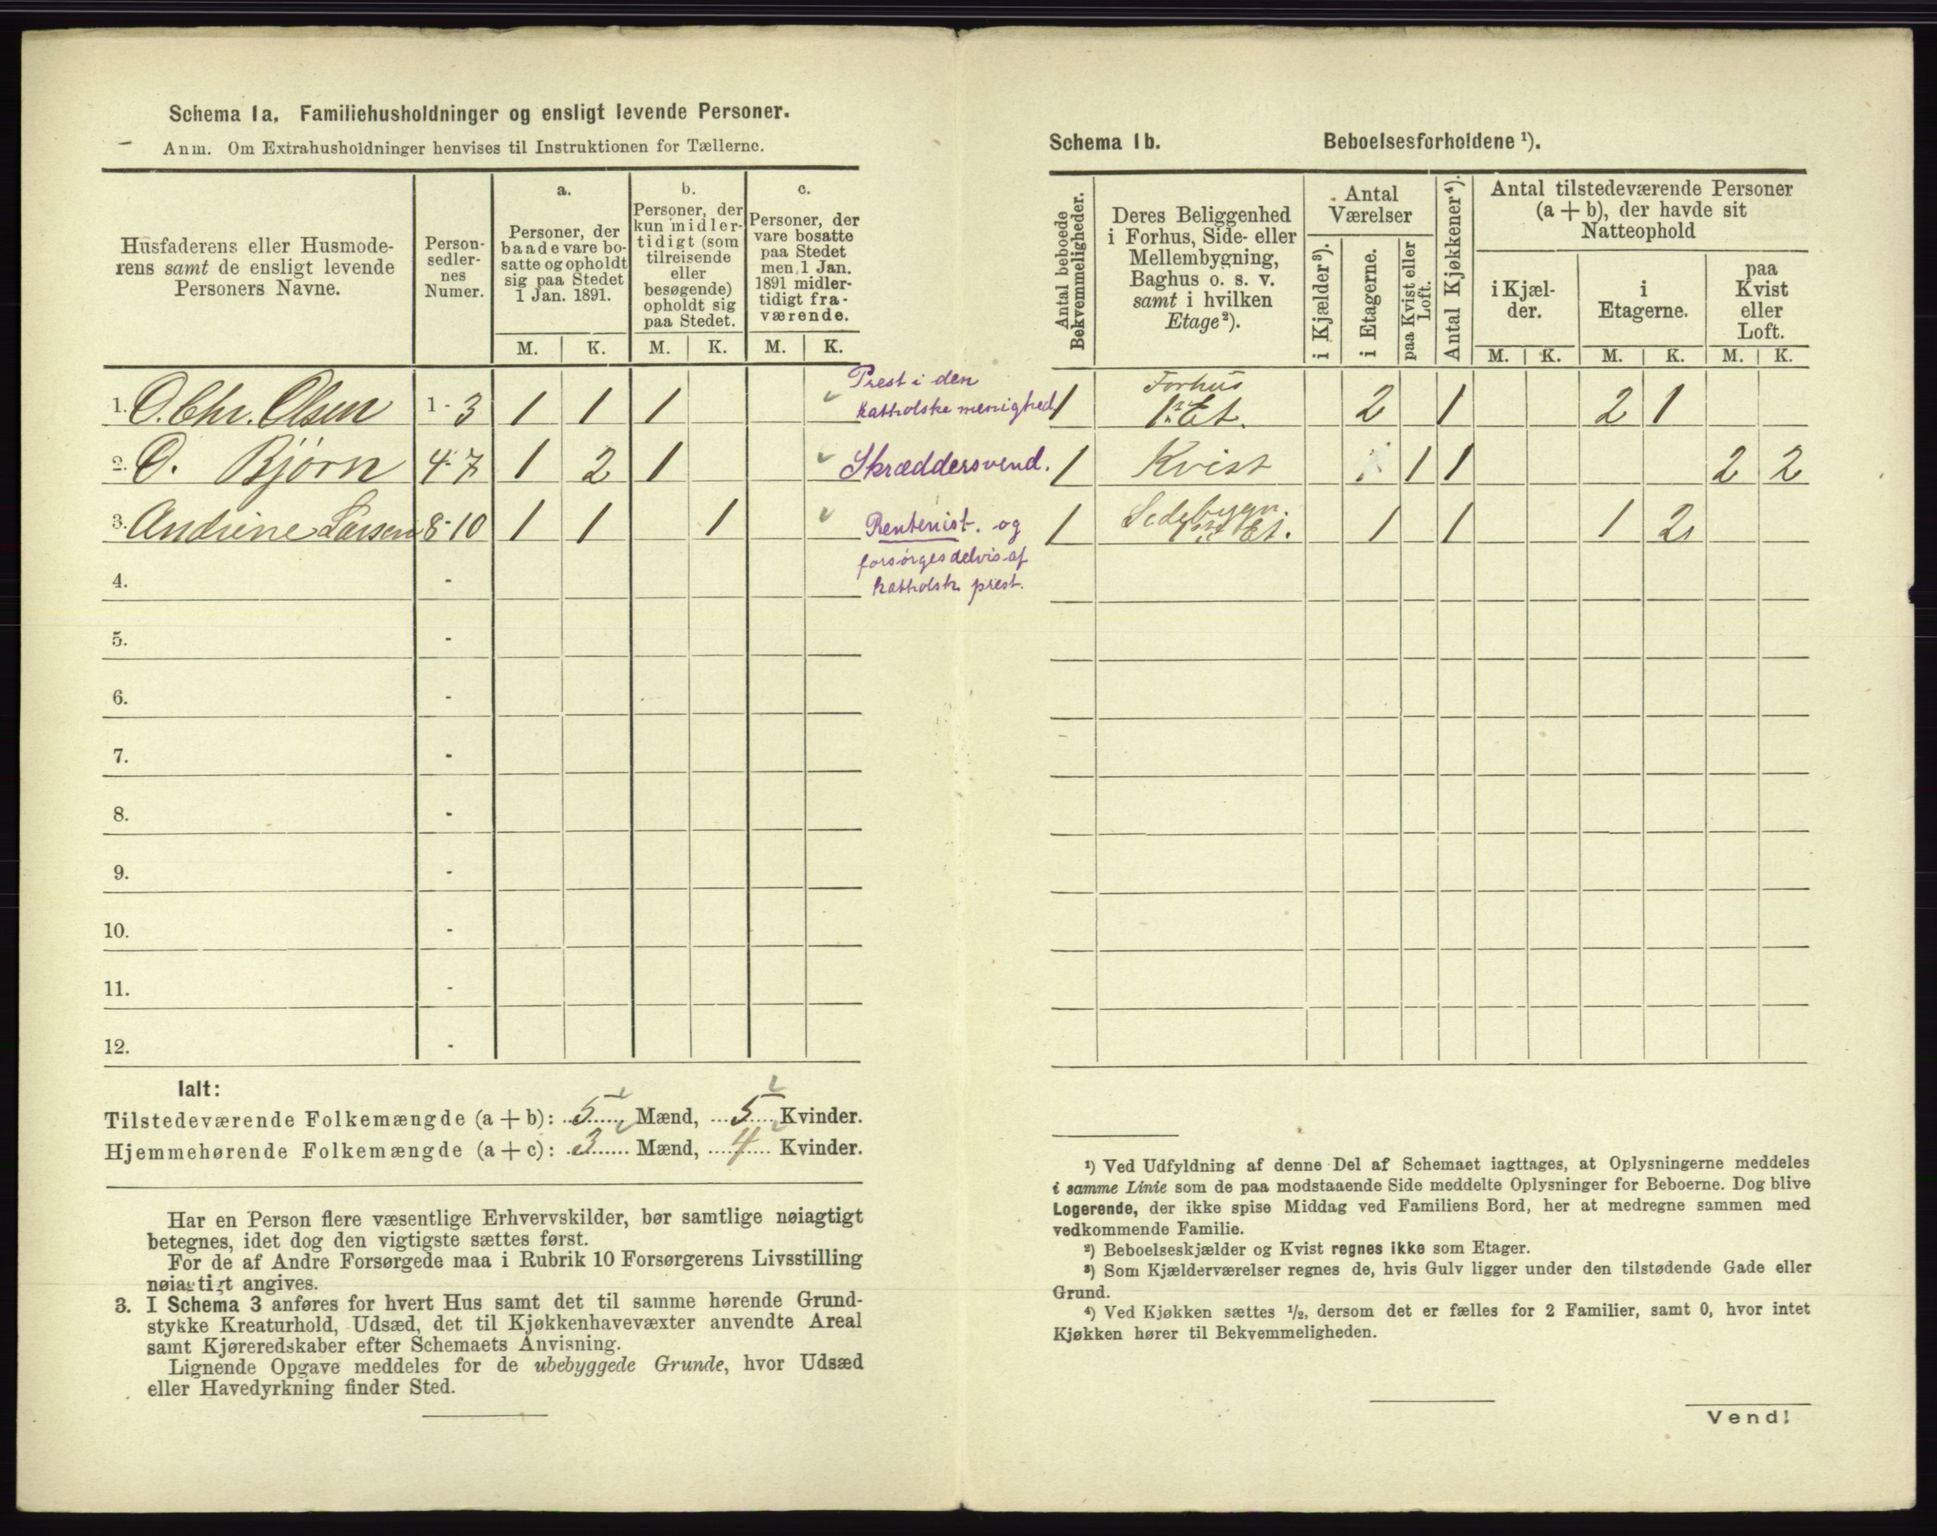 Schema 1a. Familiehusholdninger og ensligt levende Personer.
Anm. Om Extrahusholdninger henvises til Instruktionen for Tællerne.
Husfaderens eller Husmode-
rens samt de ensligt levende
Personers Navne.
Person-
sedler-
nes
Numer.
a.
Personer, der
baade vare bo-
satte og opholdt
sig paa Stedet
1 Jan. 1891.
b.
Personer, der
kun midler-
tidigt (som
tilreisende
eller
besøgende)
opholdt sig
paa Stedet.
c.
Personer, der
vare bosatte
paa Stedet
men 1 Jan.
1891 midler-
tidigt fra-
værende.
M. K. M. K. M. K.
1. O. Chr. Olsen 1-3 1 1 1
Prest i den
katholske menighed
2. O. Bjørn 4-7 1 2 1 Skræddersvend.
3. Andrine Larsen 8-10 1 1 1 Rentenist. og
forsørges delvis af
katholsk prest.
4. -
5. -
6. -
7. -
8. -
9. -
10. -
11. -
12. -
Ialt:
Tilstedeværende Folkemængde (a+b): 5 Mænd, 5 Kvinder.
Hjemmehørende Folkemængde (a+c): 3 Mænd, 4 Kvinder.
Har en Person flere væsentlige Erhvervskilder, bør samtlige nøiagtigt
betegnes, idet dog den vigtigste sættes først.
For de af Andre Forsørgede maa i Rubrik 10 Forsørgerens Livsstilling
nøiagtigt angives.
3. I Schema 3 anføres for hvert Hus samt det til samme hørende Grund-
stykke Kreaturhold, Udsæd, det til Kjøkkenhavevæxter anvendte Areal
samt Kjøreredskaber efter Schemaets Anvisning.
Lignende Opgave meddeles for de ubebyggede Grunde, hvor Udsæd
eller Havedyrkning finder Sted.
Schema 1b. Beboelsesforholdene ¹).
Antal beboede
Bekvemmeligheder.
Deres Beliggenhed
i Forhus, Side- eller
Mellembygning,
Baghus o. s. v.
samt i hvilken
Etage²).
Antal
Værelser
i Kjælder³).
i Etagerne.
paa Kvist eller
Loft.
Antal Kjøkkener⁴).
Antal tilstedeværende Personer
(a + b), der havde sit
Natteophold
i Kjæl-
der.
i
Etagerne.
paa
Kvist
eller
Loft.
M. K. M. K. M. K.
1 Forhus
1ste Et. 2 1 2 1
1 Kvist 1 1 2 2
1 Sidebygn.
1ste Et. 1 1 1 2
¹) Ved Udfyldning af denne Del af Schemaet iagttages, at Oplysningerne meddeles
i samme Linie som de paa modstaaende Side meddelte Oplysninger for Beboerne. Dog blive
Logerende, der ikke spise Middag ved Familiens Bord, her at medregne sammen med
vedkommende Familie.
²) Beboelseskjælder og Kvist regnes ikke som Etager.
³) Som Kjælderværelser regnes de, hvis Gulv ligger under den tilstødende Gade eller
Grund.
⁴) Ved Kjøkken sættes ¹/₂, dersom det er fælles for 2 Familier, samt 0, hvor intet
Kjøkken hører til Bekvemmeligheden.
Vend!